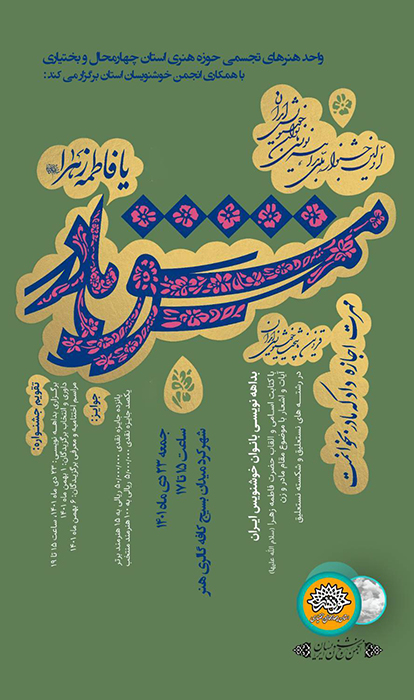 واحد هنرهای تجسمی حوزه هنری استان چهارمحال و بختیاری
با همکاری انجمن خوشنویسان استان برگزار می کند:
یا فاطمه زهرا
مهرت اجازه داد که مادر بخوانمت
بداهه نویسی بانوان خوشنویس ایران
با کتابت اسامی و القاب حضرت فاطمه زهرا (سلام الله علیها)
آیات و اشعار با موضوع مقام مادر و زن
در رشته های نستعلیق و شکسته نستعلیق
جمعه ۲۳ دی ماه ۱۴۰۱
ساعت ۱۵ تا ۱۷
شهرکرد میدان بسیج کافه گالری هنر
جوایز:
پانزده جایزه نقدی ۵۰,۰۰۰,۰۰۰ ریالی به ۱۵ هنرمند برتر
یکصد جایزه نقدی ۵,۰۰۰,۰۰۰ ریالی به ۱۰۰ هنرمند منتخب
تقویم جشنواره:
برگزاری بداهه نویسی: ۲۳ دی ماه ۱۴۰۱ ساعت ۱۵ تا ۱۹
داوری و انتخاب برگزیدگان: ۱ بهمن ماه ۱۴۰۱
مراسم اختتامیه و معرفی برگزیدگان: ۶ بهمن ماه ۱۴۰۱
حوزه هنری
انجمن خوشنویسان ایران